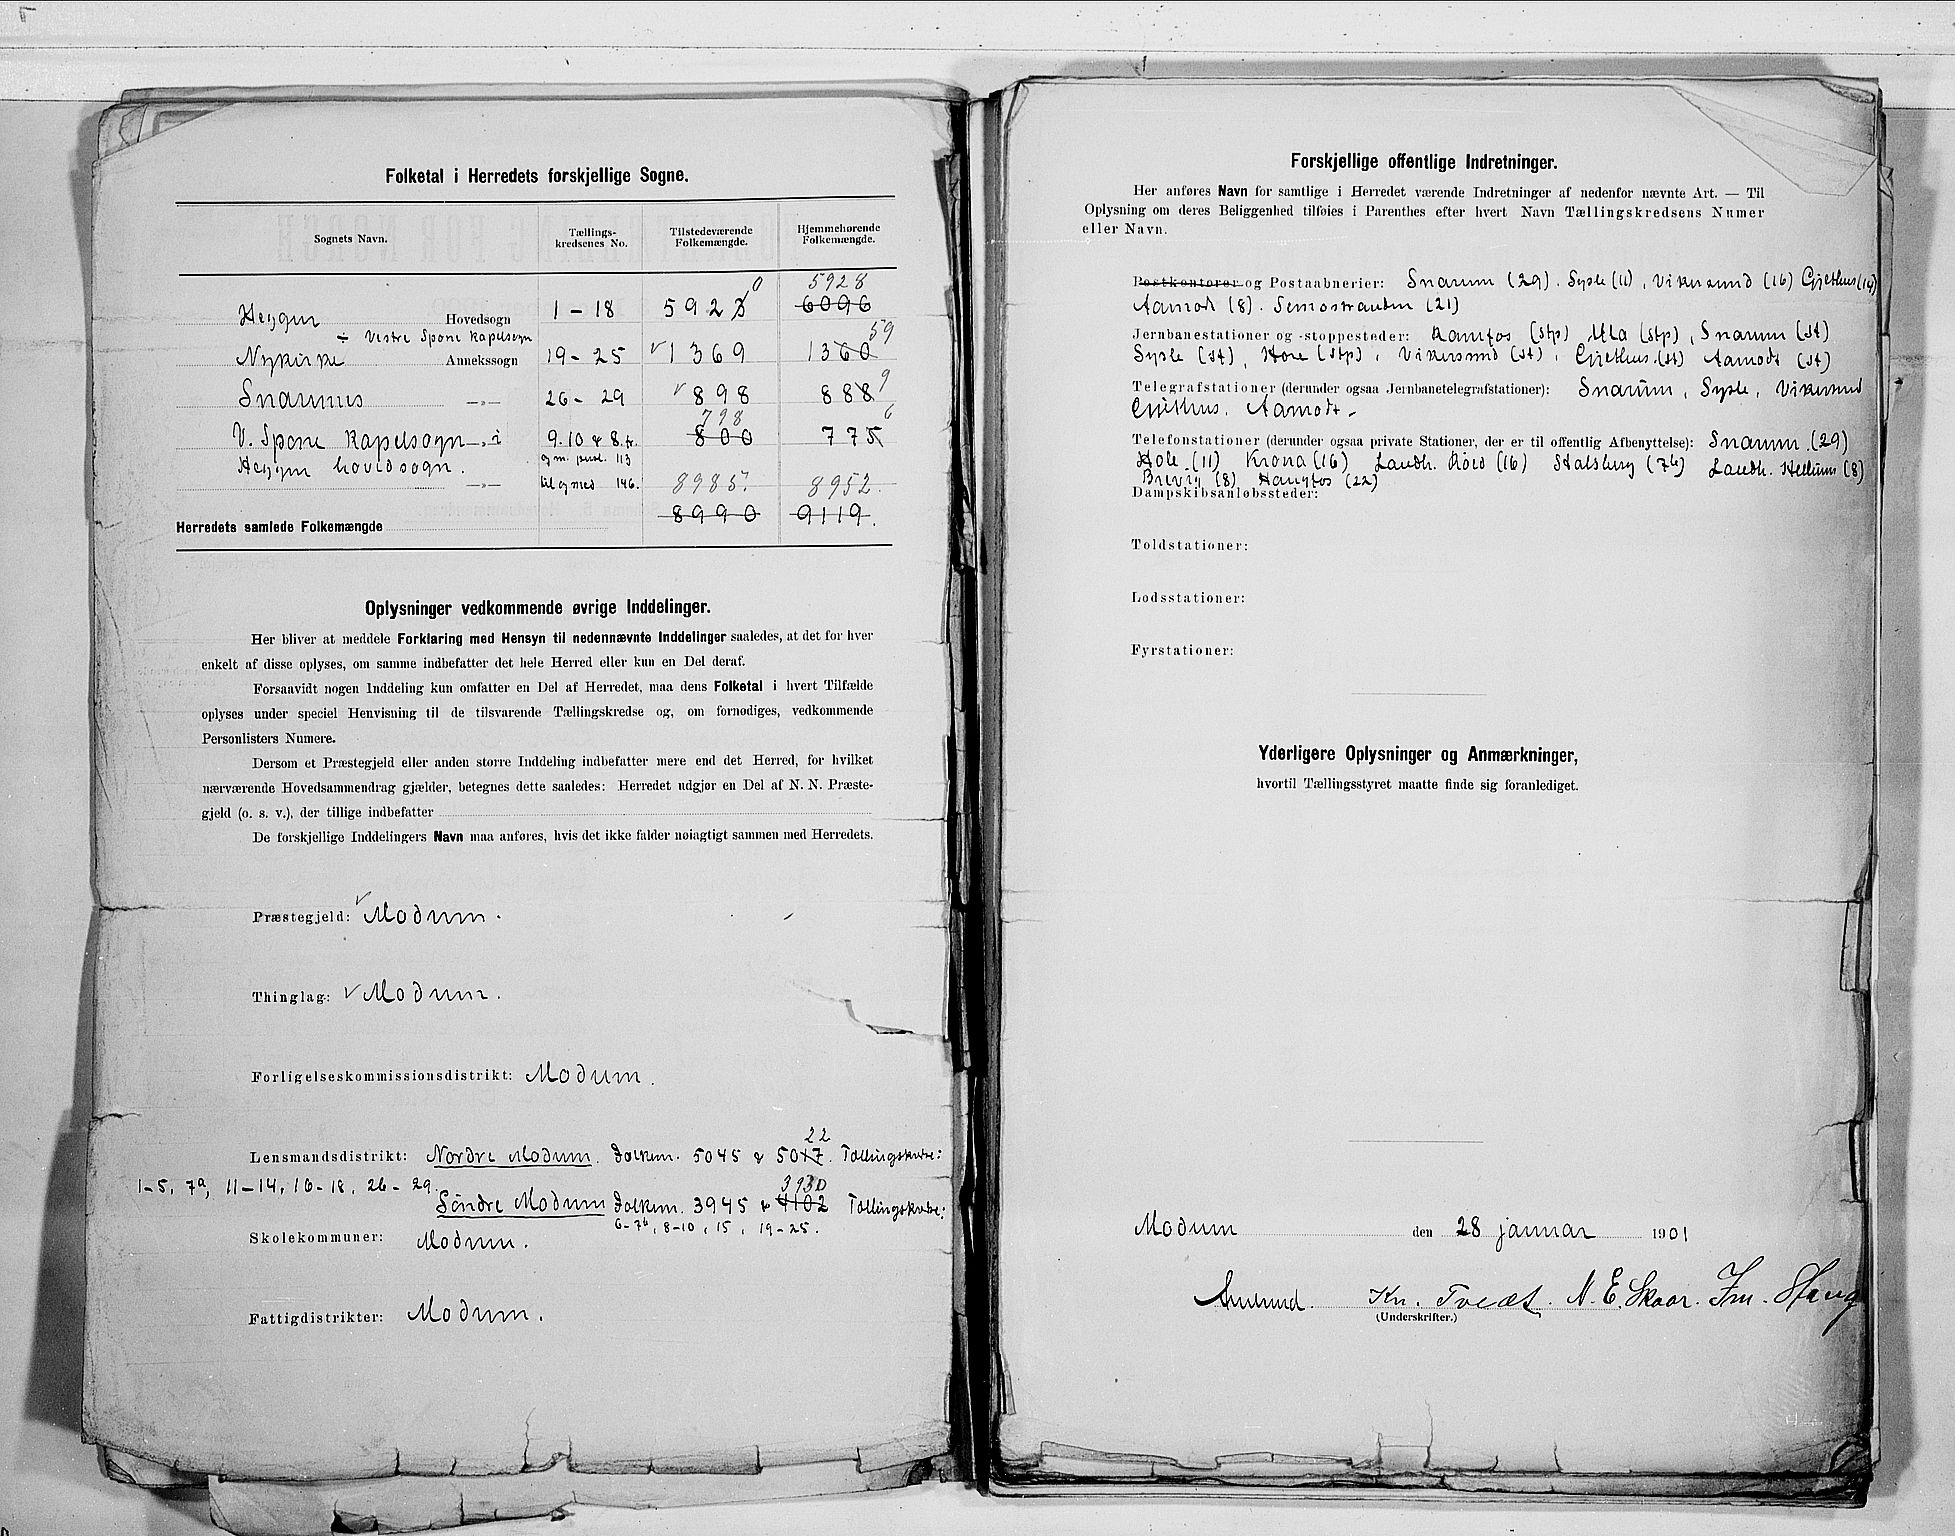 Folketal i Herredets forskjellige Sogne.
Sognets Navn. Tællings- kredsenes No. Tilstedeværende Folkemængde. Hjemmehørende Folkemængde.
0 5928
Heggen Hovedsogn 1 - 18 5923 6096
÷ Vestre Spone Kapelsogn 59
Nykirke Annekssogn 19 - 25 1369 1360
9
Snarums —„— 26 - 29 898 888
798 6
V. Spone Kapelsogn —„— i 9. 10 & 8. fr. 800 775
Heggen hovedsogn. og m. 113
—„— til og med 146. 8985. 8952.
Herredets samlede Folkemængde 8990 9119.
Oplysninger vedkommende øvrige Inddelinger.
Her bliver at meddele Forklaring med Hensyn til nedennævnte Inddelinger saaledes, at det for hver
enkelt af disse oplyses, om samme indbefatter det hele Herred eller kun en Del deraf.
Forsaavidt nogen Inddeling kun omfatter en Del af Herredet, maa dens Folketal i hvert Tilfælde
oplyses under speciel Henvisning til de tilsvarende Tællingskredse og, om fornødiges, vedkommende
Personlisters Numere.
Dersom et Præstegjeld eller anden større Inddeling indbefatter mere end det Herred, for hvilket
nærværende Hovedsammendrag gjælder, betegnes dette saaledes: Herredet udgjør en Del af N. N. Præste-
gjeld (o. s. v.), der tillige indbefatter
De forskjellige Inddelingers Navn maa anføres, hvis det ikke falder nøiagtigt sammen med Herredets.
Præstegjeld: Modum.
Thinglag: Modum.
Forligelseskommissionsdistrikt: Modum.
22
Lensmandsdistrikt: Nordre Modum. Folkem. 5045 & 5017. Tællingskredse:
1-5, 7a, 11-14, 16-18, 26-29. 3930
Söndre Modum Folkem. 3945 & 4102 Tællingskredse:
6-7b, 8-10, 15, 19-25.
Skolekommuner: Modum.
Fattigdistrikter: Modum.
Forskjellige offentlige Indretninger.
Her anføres Navn for samtlige i Herredet værende Indretninger af nedenfor nævnte Art. — Til
Oplysning om deres Beliggenhed tilføies i Parenthes efter hvert Navn Tællingskredsens Numer
eller Navn.
Postkontorer og Postaabnerier: Snarum (29). Sysle (11), Vikersund (16) Gjethus (14)
Aamot (8). Semostranden (21)
Jernbanestationer og -stoppesteder: Ramfos (stp) Ula (stp), Snarum (st)
Sysle (st), Hore (stp), Vikersund (st), Gjethus (st) Aamodt (st)
Telegrafstationer (derunder ogsaa Jernbanetelegrafstationer): Snarum, Sysle, Vikersund
Gjethus, Aamodt -
Telefonstationer (derunder ogsaa private Stationer, der er til offentlig Afbenyttelse): Snarum (29)
Hole (11) Krona (16) Landh. Röed (16) Stalsberg (7b) Landh. Hellum (8)
Brevig (8) Haugfos (22)
Dampskibsanløbssteder:
Toldstationer:
Lodsstationer:
Fyrstationer:
Yderligere Oplysninger og Anmærkninger,
hvortil Tællingsstyret maatte finde sig foranlediget.
Modum den 28 januar 1901
Kr. Tveæt. N. E. Skaar.
(Underskrifter.)